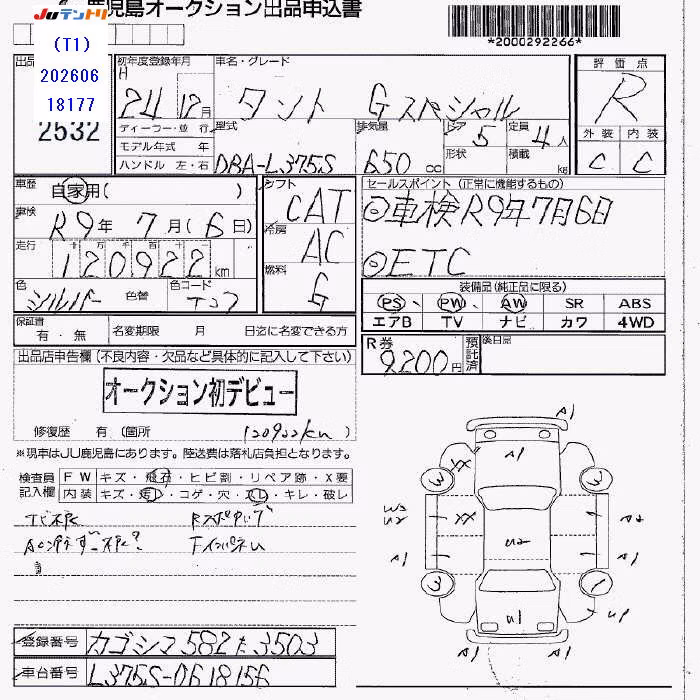 JUテントリ
鹿児島オークション出品申込書
*2000292266*
(T1)
202606
18177
2532
初年度登録年月
H 24年12月
ディーラー・並行
モデル年式 年
ハンドル 左・右
車名・グレード
タント Gスペシャル
型式
DBA-L375S
排気量
650 cc
ドア 5
形状
定員 4人
積載 kg
評価点
R
外装 内装
C C
車歴
自家用( )
車検
R9年 7月(6日)
走行
十 万 千 百 十 一
120922km
色
シルバー
色替
色コード
シフト
CAT
冷房
AC
燃料
G
セールスポイント (正常に機能するもの)
◎車検R9年7月6日
◎ETC
装備品(純正品に限る)
PS PW AW SR ABS
エアB TV ナビ カワ 4WD
保証書
有・無
名変期限 月 日迄に名変できる方
R券
9200円
預託済
後日品
出品店申告欄(不良内容・欠品など具体的に記入して下さい)
オークション初デビュー
修復歴 有(箇所 120922km)
※現車はJU鹿児島にあります。陸送費は落札店負担となります。
検査員記入欄
FW キズ・飛石・ヒビ割・リペア跡・X要
内装 キズ・汚レ・コゲ・穴・スレ・キレ・破レ
A1
A1
XX
3
3
W3
U2
XX
U2
A2
A1
A1
3
1
U1
U1
A1
登録番号
カゴシマ582た3503
車台番号
L375S-0618156